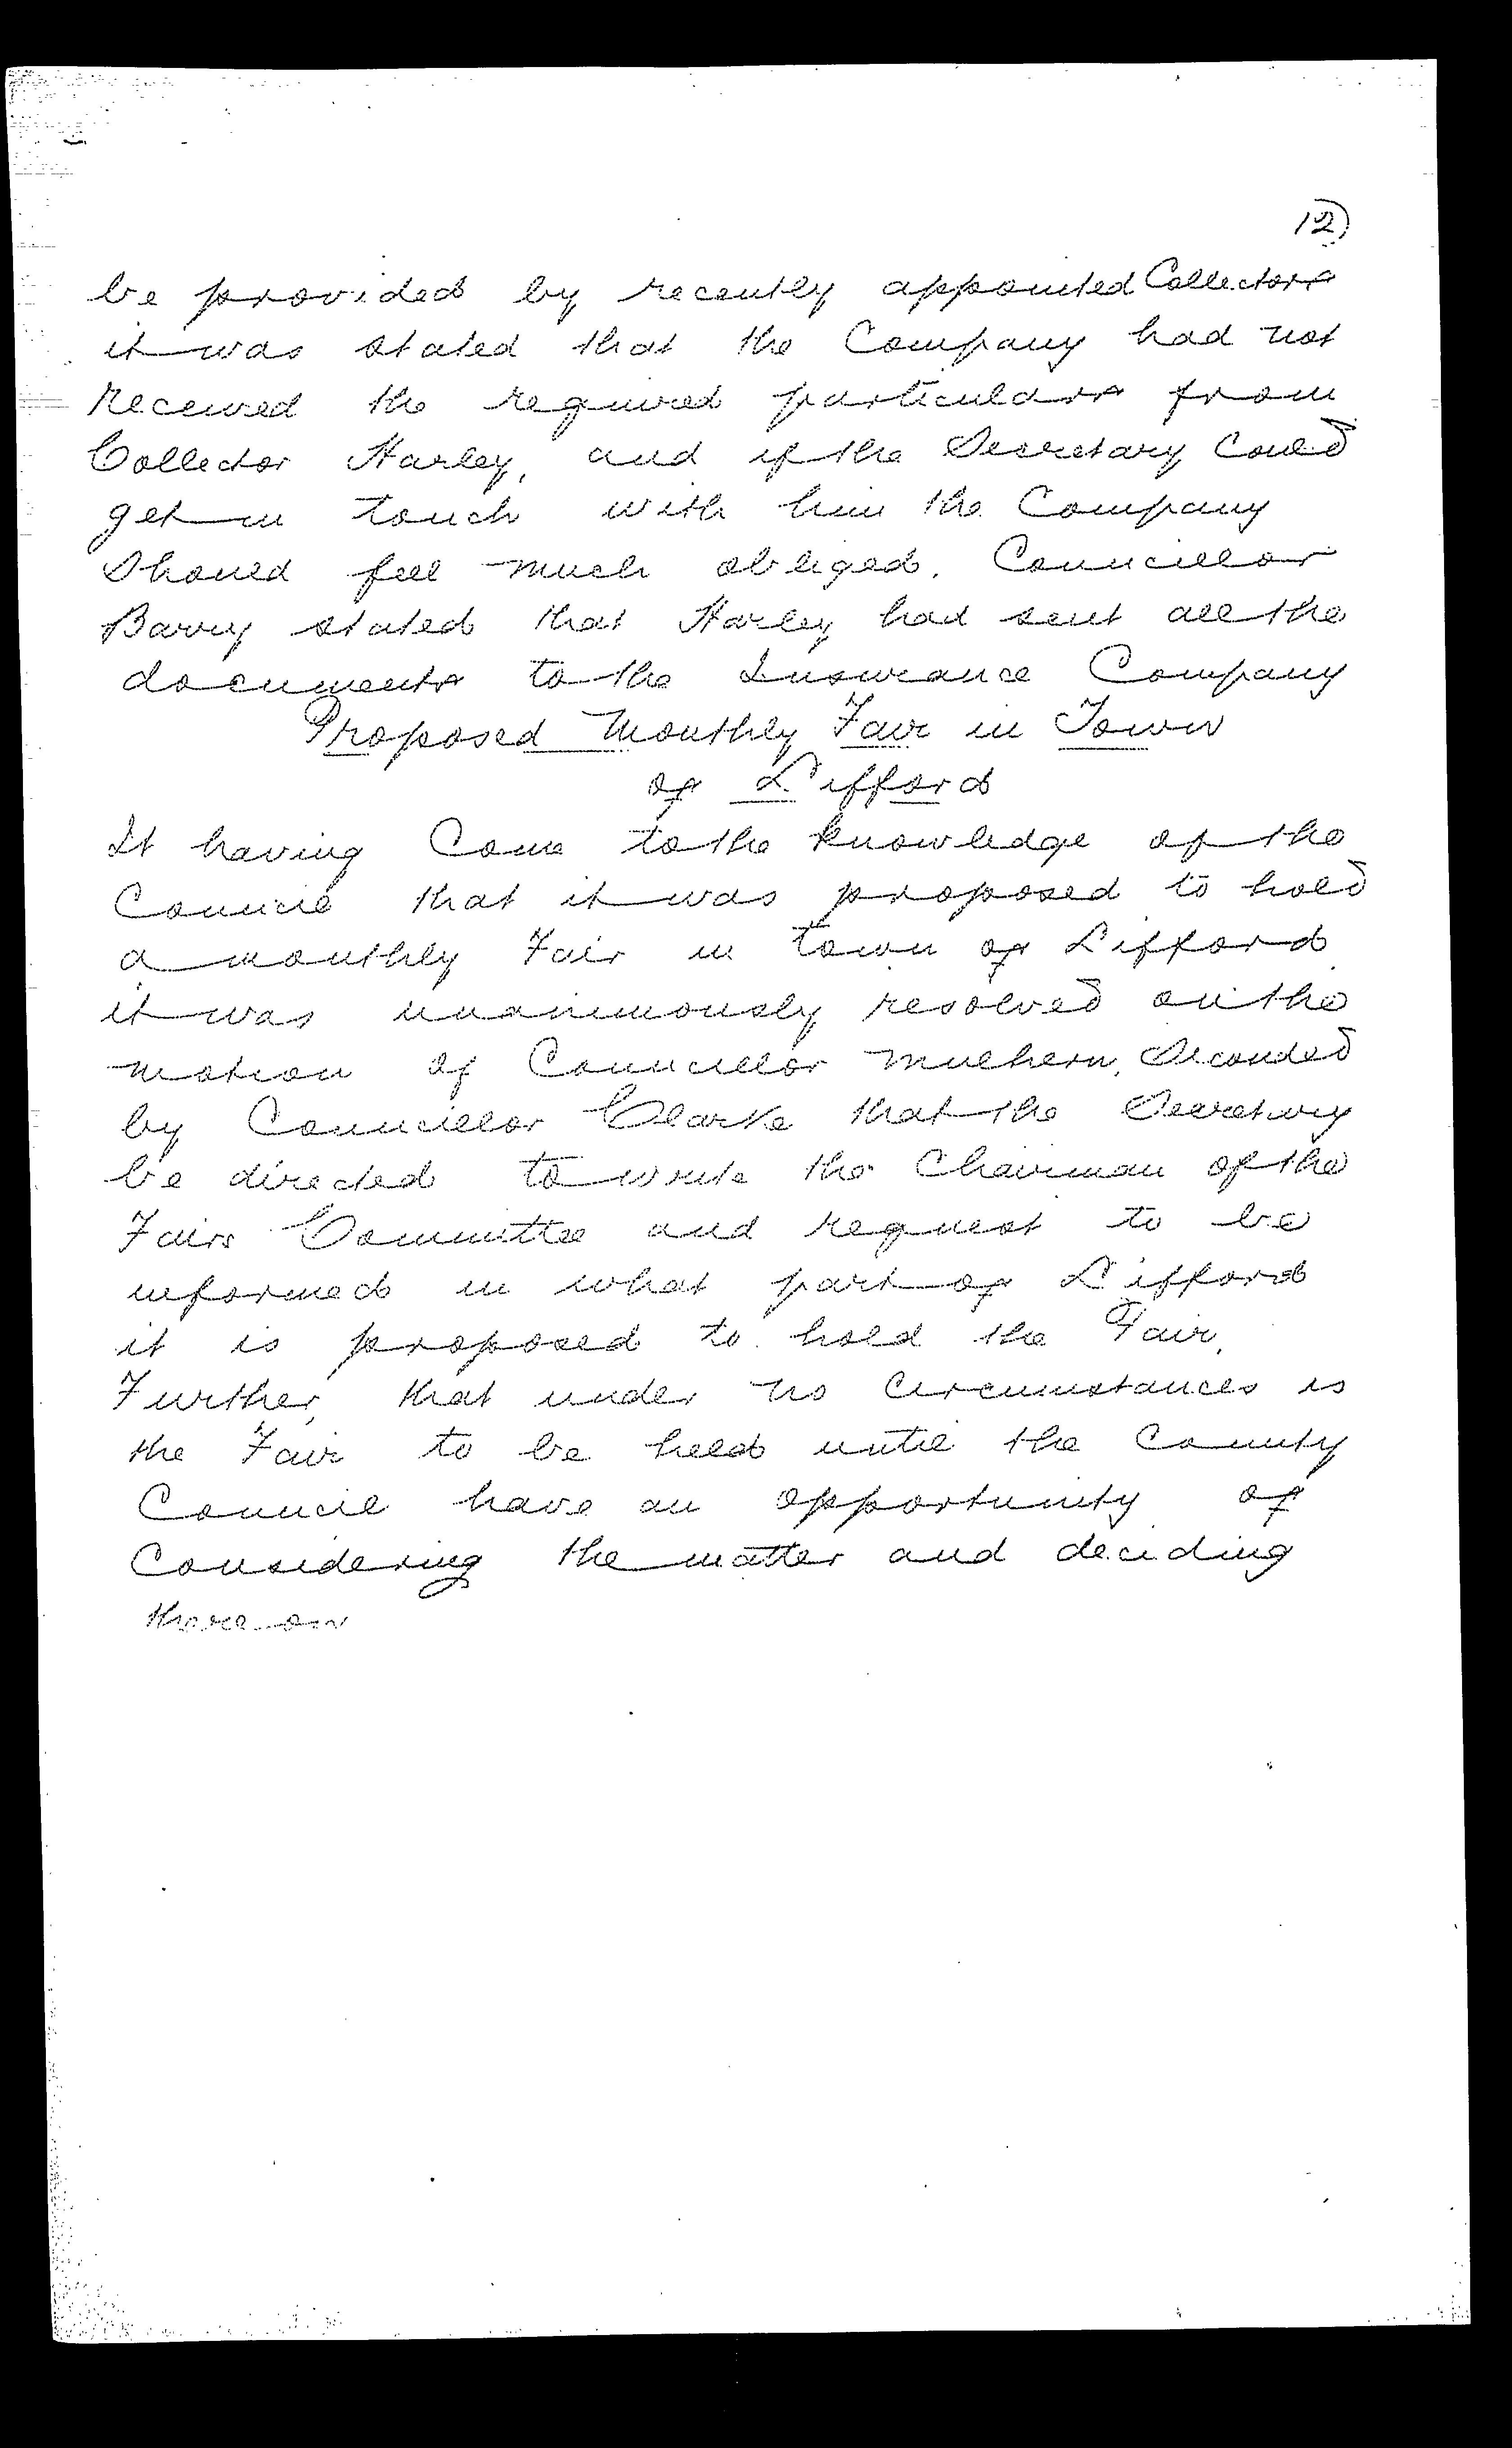 12)
be provided by recently appointed Collectors
it was stated that the Company had not
received the required particulars from
Collector Harley, and if the Secretary Could
get in touch with him the Company
should feel much obliged. Councillor
Barry stated that Harley had sent all the
documents to the Insurance Company
Proposed Monthly Fair in Town
of Lifford
It having Come to the knowledge of the
Council that it was proposed to hold
a monthly Fair in town of Lifford
it was unanimously resolved on the
motion of Councillor Mulhern, Seconded
by Councillor Clarke that the Secretary
be directed to write the Chairman of the
Fairs Committee and request to be
informed in what part of Lifford
it is proposed to hold the Fair.
Further, that under no Circumstances is
the Fair to be held until the County
Council have an opportunity of
Considering the matter and deciding
thereon